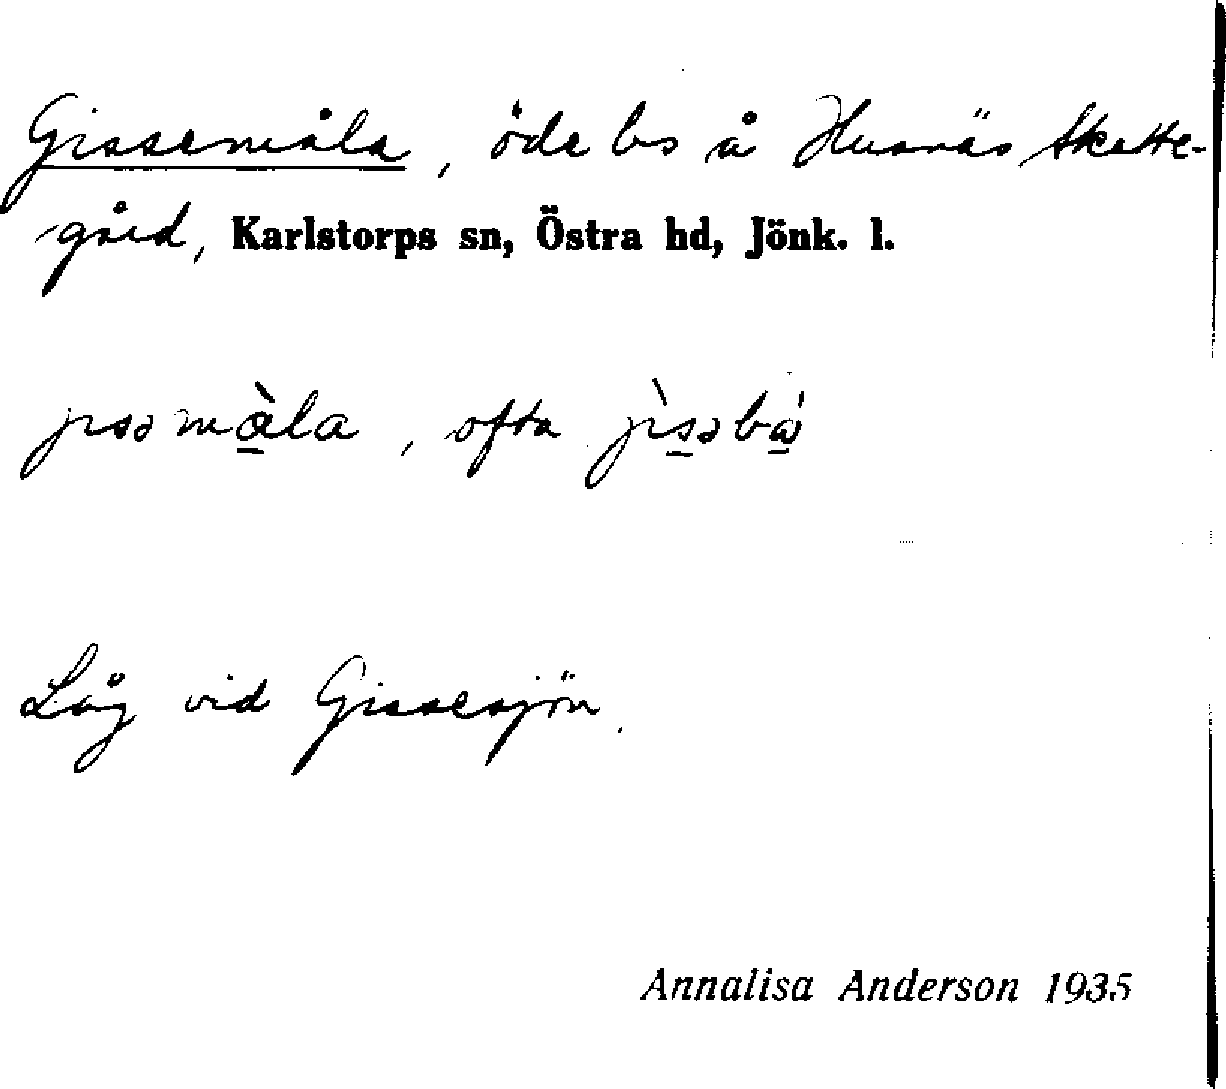 Gissemåla, öde bs å Husnäs Skatte-
gård, Karlstorps sn, Östra hd, Jönk. l.
, ofta
Låg vid Gissesjön.
Annalisa Anderson 1935